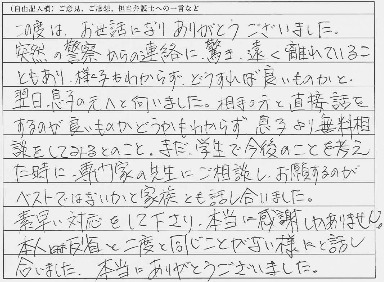 (自由記入欄:ご意見、ご感想、担当弁護士への一言など)
この度は、お世話になりありがとうございました。
突然の警察からの連絡に、驚き、遠く離れているこ
ともあり、様子もわからず、どうすれば良いものかと、
翌日息子の元へと向いました。相手の方と直接話を
するのが良いものかどうかもわからず 息子より無料相
談をしてみるとのこと。まだ、学生で今後のことを考え
た時に、専門家の先生にご相談し、お願いするのが
ベストではないかと家族とも話し合いました。
素早い対応をして下さり、本当に感謝しかありません。
本人も反省し、二度と同じことがない様にと話し
合いました。本当にありがとうございました。